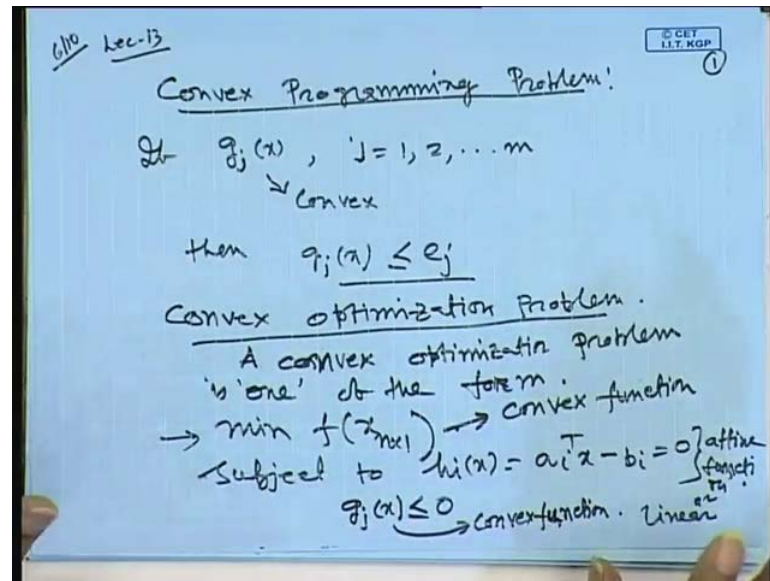 6/10 Lec-13
© CET
I.I.T. KGP
1
Convex Programming Problem:
If gj(x), j = 1, 2, ... m
convex
then gj(x) ≤ ej
Convex optimization Problem.
A convex optimizatin problem
is 'one' of the form.
→ min f(x_nx1) → convex function
Subject to hi(x) = aiᵀx - bi = 0 } affine
gj(x) ≤ 0 → convex function. Linear